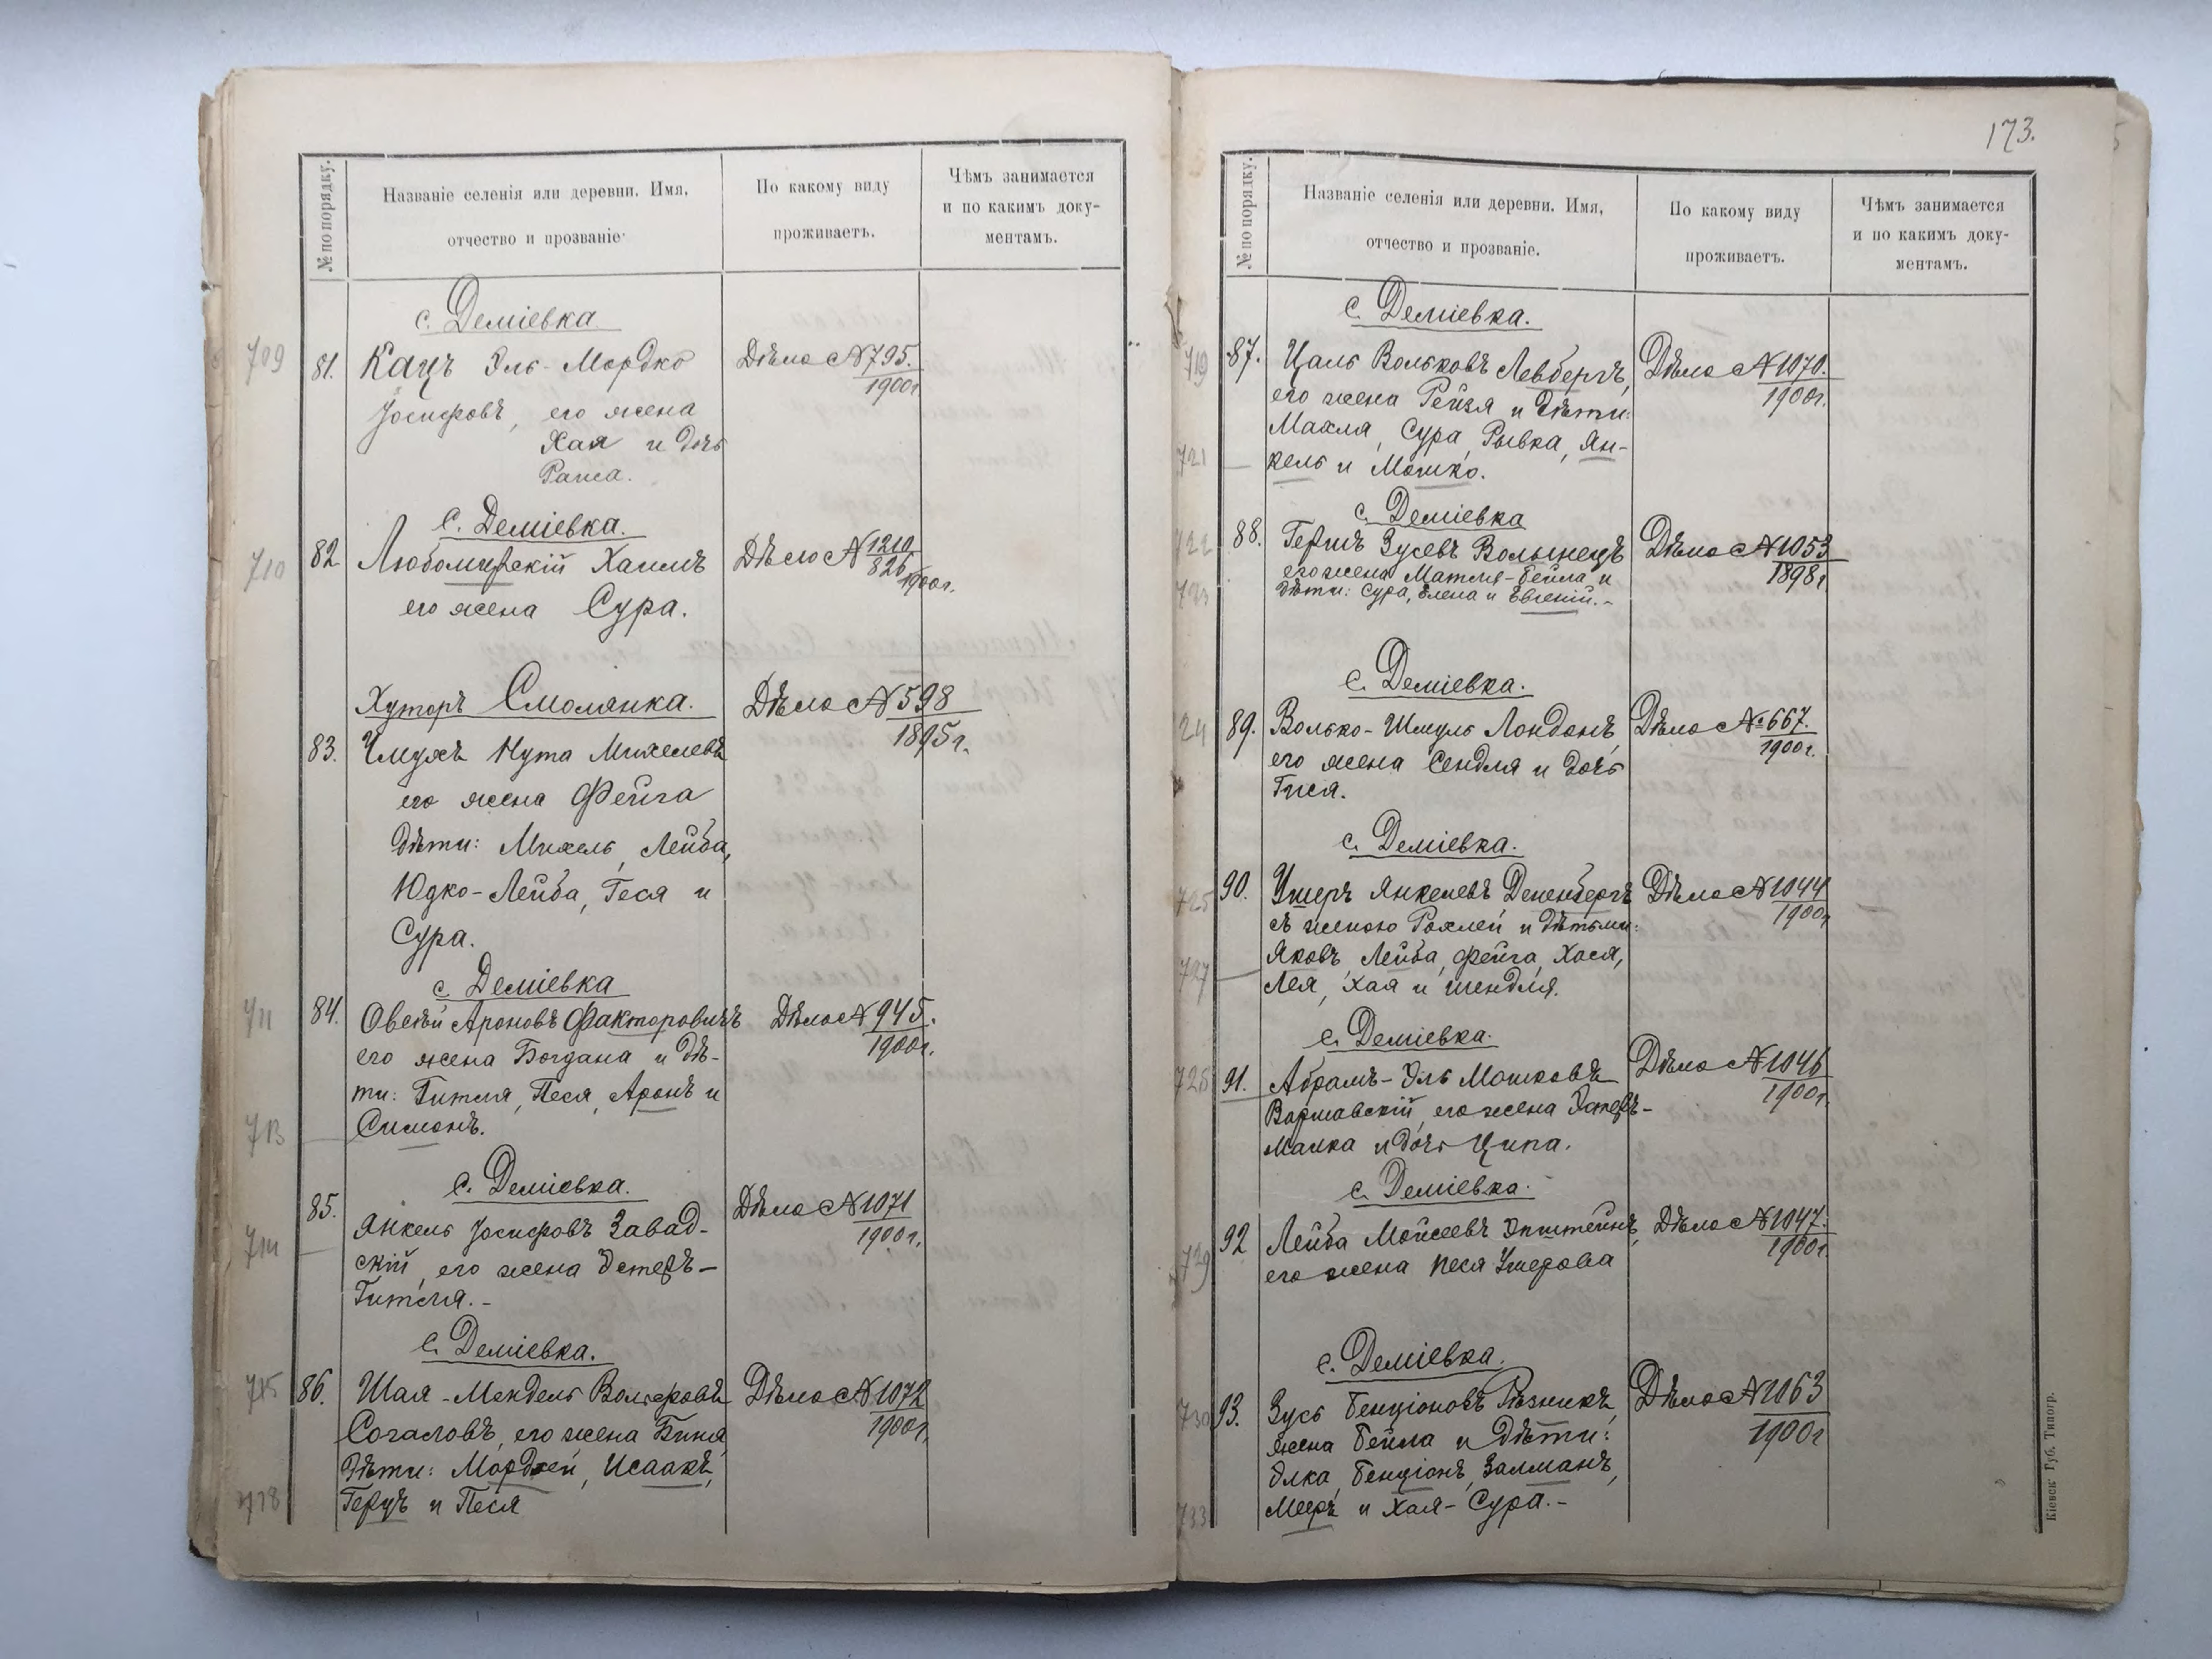 № по порядку.
Названіе селенія или деревни. Имя,
отчество и прозваніе.
По какому виду
проживаетъ.
Чѣмъ занимается
и по какимъ доку-
ментамъ.
с. Деміевка
709 81. Кацъ Эль-Мордко Дѣло № 795.
Іосифовъ, его жена 1900г.
Хая и дочь
Раша.
С. Деміевка.
710 82 Любомирскій Хаимъ Дѣло № 1210
826 1900г.
его жена Сура.
Хуторъ Смолянка. Дѣло № 598
1895г.
83. Чмухъ Нута Михелевъ
его жена Фейга
дѣти: Михель, Лейба,
Юдко-Лейба, Геся и
Сура.
с. Деміевка
711 84. Овсѣй Ароновъ Факторовичъ Дѣло № 945.
его жена Богдана и дѣ- 1900г.
ти: Гитля, Песя, Аронъ и
713 Симонъ.
С. Деміевка.
85. Дѣло № 1071
Янкель Іосифовъ Завад- 1900г.
714 скій, его жена Эстеръ-
Гитля.-
С. Деміевка.
715 86. Шая-Мендель Волфовъ Дѣло № 1072
Согаловъ, его жена Бина, 1900г.
дѣти: Мордхей, Исаакъ,
718 Герцъ и Песя
173.
№ по порядку.
Названіе селенія или деревни. Имя,
отчество и прозваніе.
По какому виду
проживаетъ.
Чѣмъ занимается
и по какимъ доку-
ментамъ.
с. Деміевка.
719 87. Цаль Вольковъ Левбергъ, Дѣло № 1070.
его жена Рейзя и дѣти: 1900г.
Махля, Сура, Рывка, Ян-
721 кель и Мошко.
с. Деміевка
722 88. Гершъ Зусевъ Волынецъ Дѣло № 1053
его жена Матля-Бейла и 1898г.
723 дѣти: Сура, Елена и Евгеній.-
с. Деміевка.
24 89. Волько-Шмуль Лондонъ, Дѣло № 667.
его жена Сендля и дочь 1900г.
Гися.
с. Деміевка.
725 90. Ушеръ Янкелевъ Депенбергъ Дѣло № 1044
съ женою Рохлей и дѣтьми: 1900г.
Яковъ, Лейба, Фейга, Хася,
727 Лея, Хая и Шендля.
с. Деміевка.
728 91. Абрамъ-Эль Мошковъ Дѣло № 1046
Варшавскій, его жена Эстеръ- 1900г.
Малка и дочь Ципа.
с. Деміевка.
92 Лейба Мойсеевъ Эпштейнъ, Дѣло № 1047.
729 его жена Песя Ушерова 1900г.
с. Деміевка.
730 93. Зусь Бенціоновъ Рѣзникъ, Дѣло № 1063
жена Бейла и дѣти: 1900г
Элка, Бенціонъ, Залманъ,
733 Мееръ и Хая-Сура.-
Кіевск. Губ. Типогр.